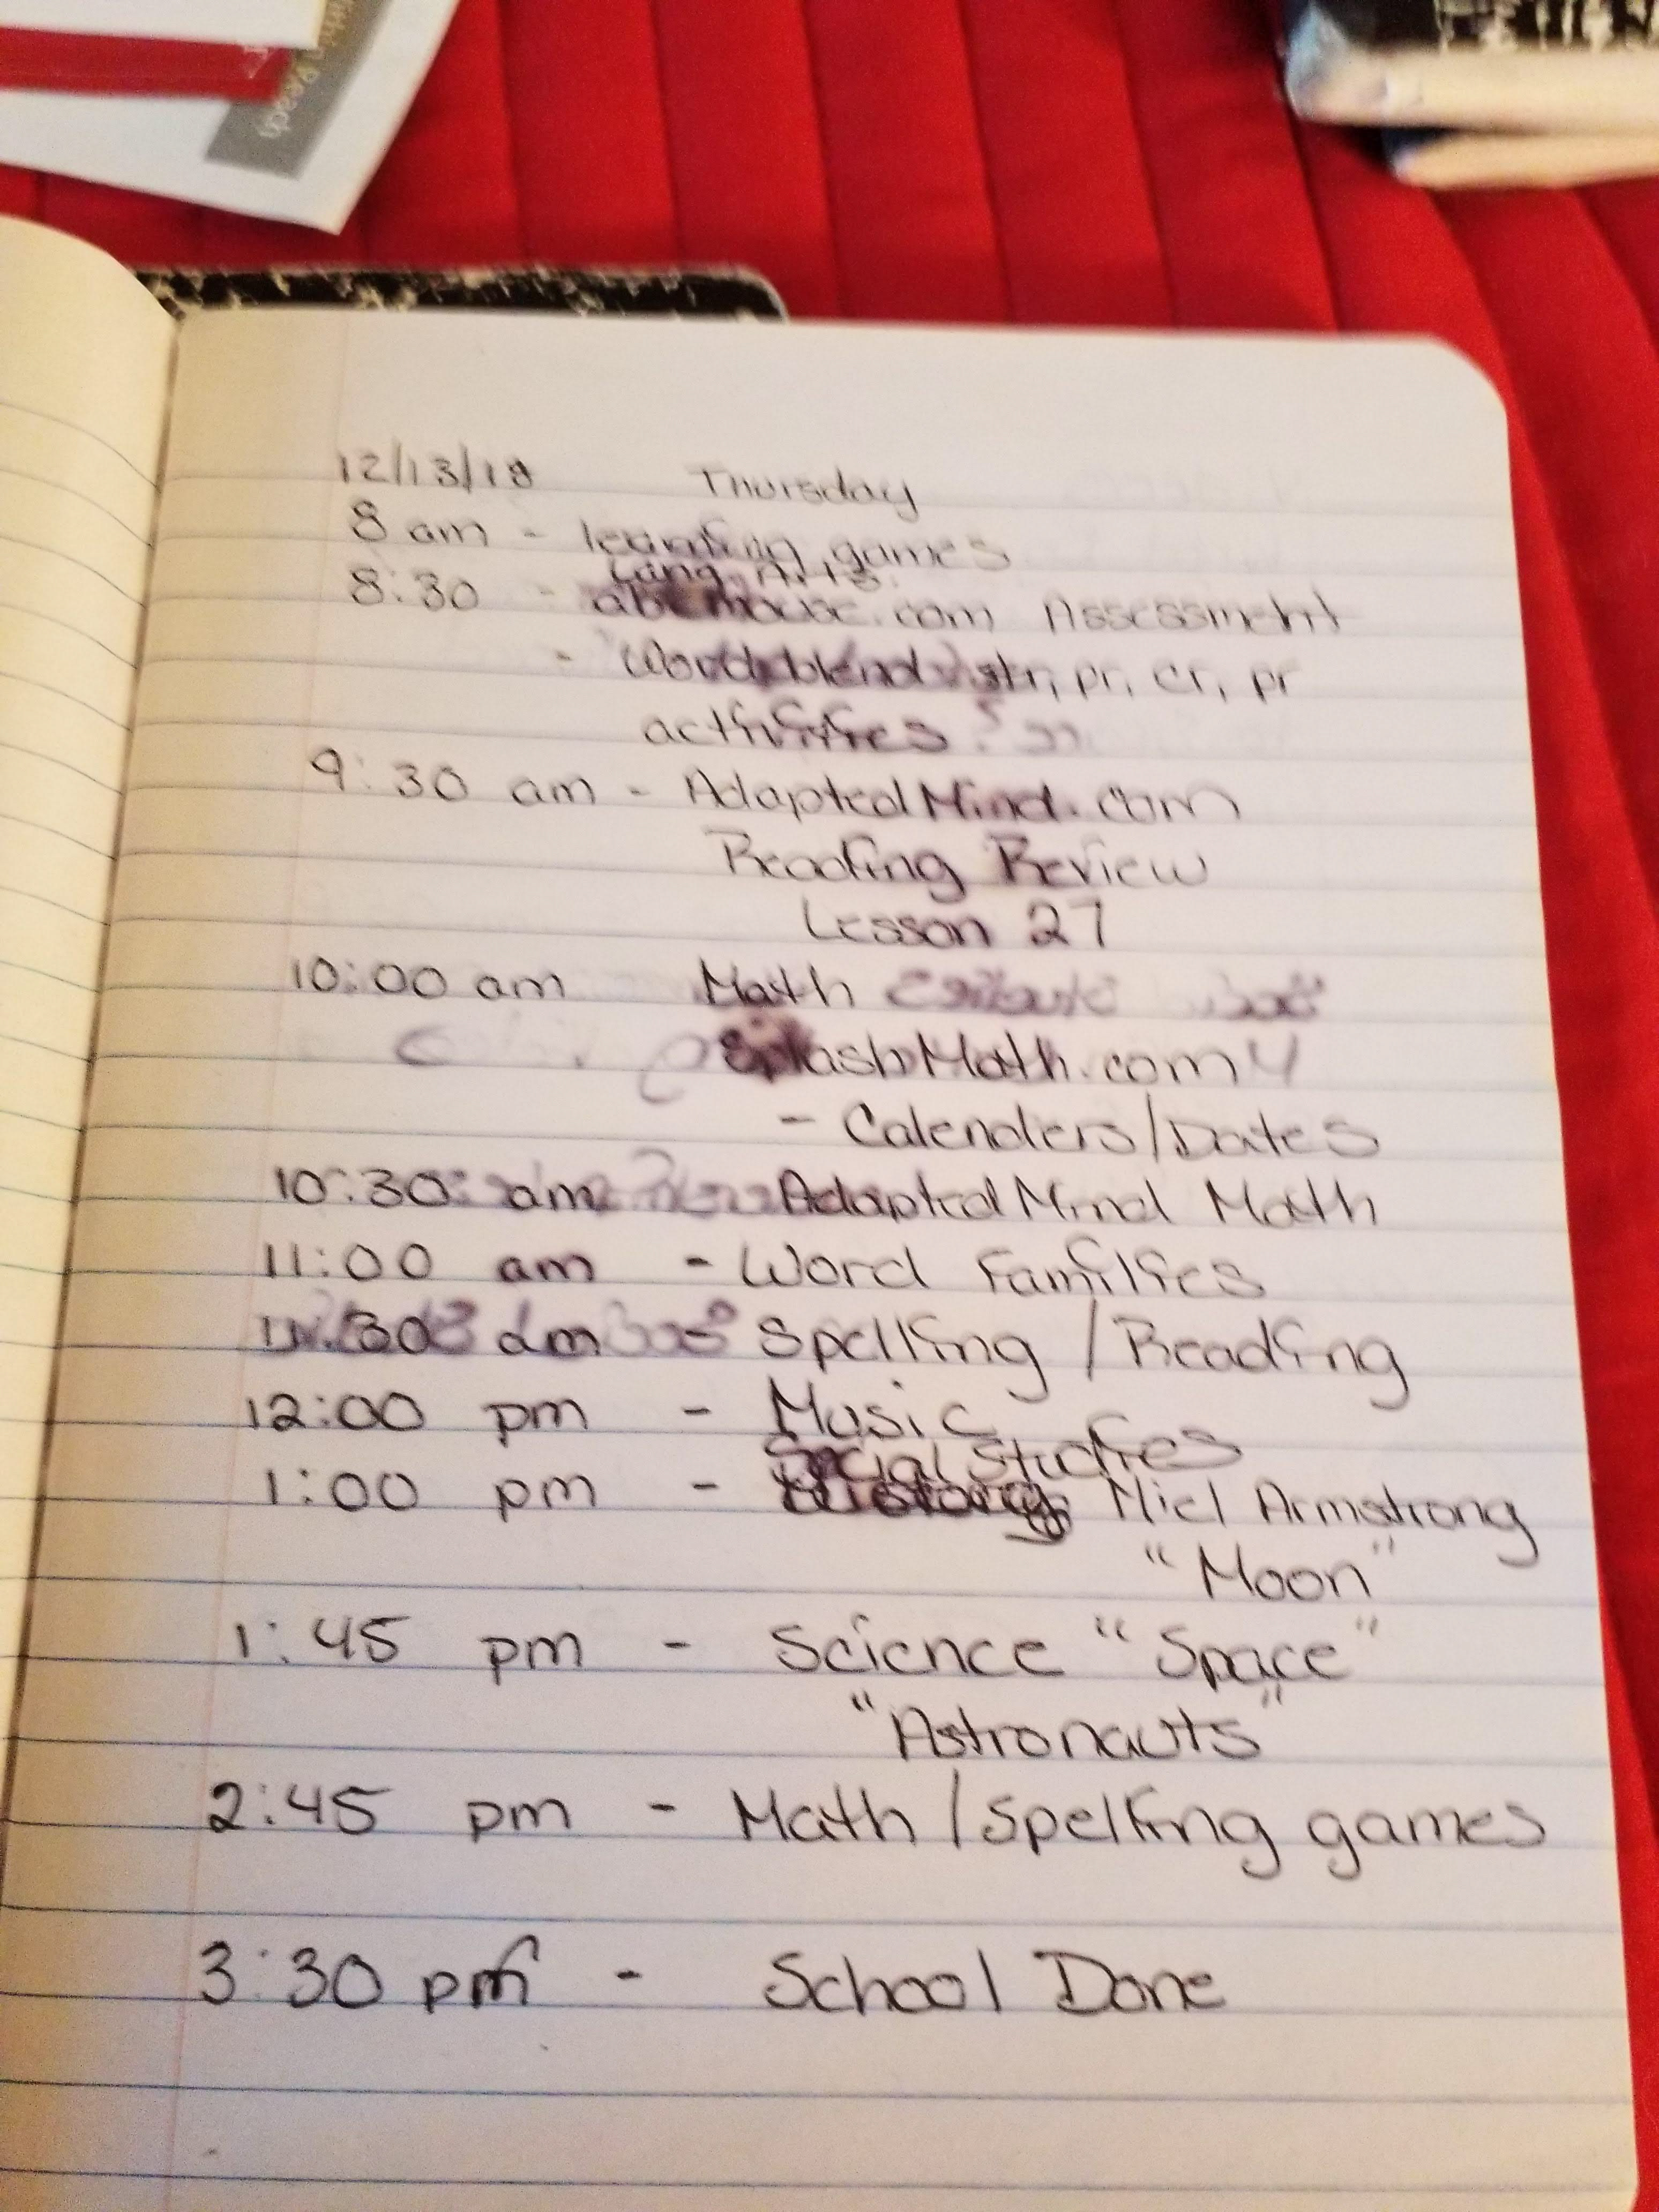 12/13/18 Thursday
8 am - learning games
Lang. Arts.
8:30 - abcmouse.com Assessment
- Word blends str, pr, cr, pr
activities
9:30 am - AdaptedMind.com
Reading Review
Lesson 27
10:00 am Math
SplashMath.com
- Calenders/Dates
10:30 am AdaptedMind Math
11:00 am - Word Families
11:30 am - Spelling / Reading
12:00 pm - Music
Social Studies
1:00 pm - History Niel Armstrong
"Moon"
1:45 pm - Science "Space"
"Astronauts"
2:45 pm - Math / Spelling games
3:30 pm - School Done